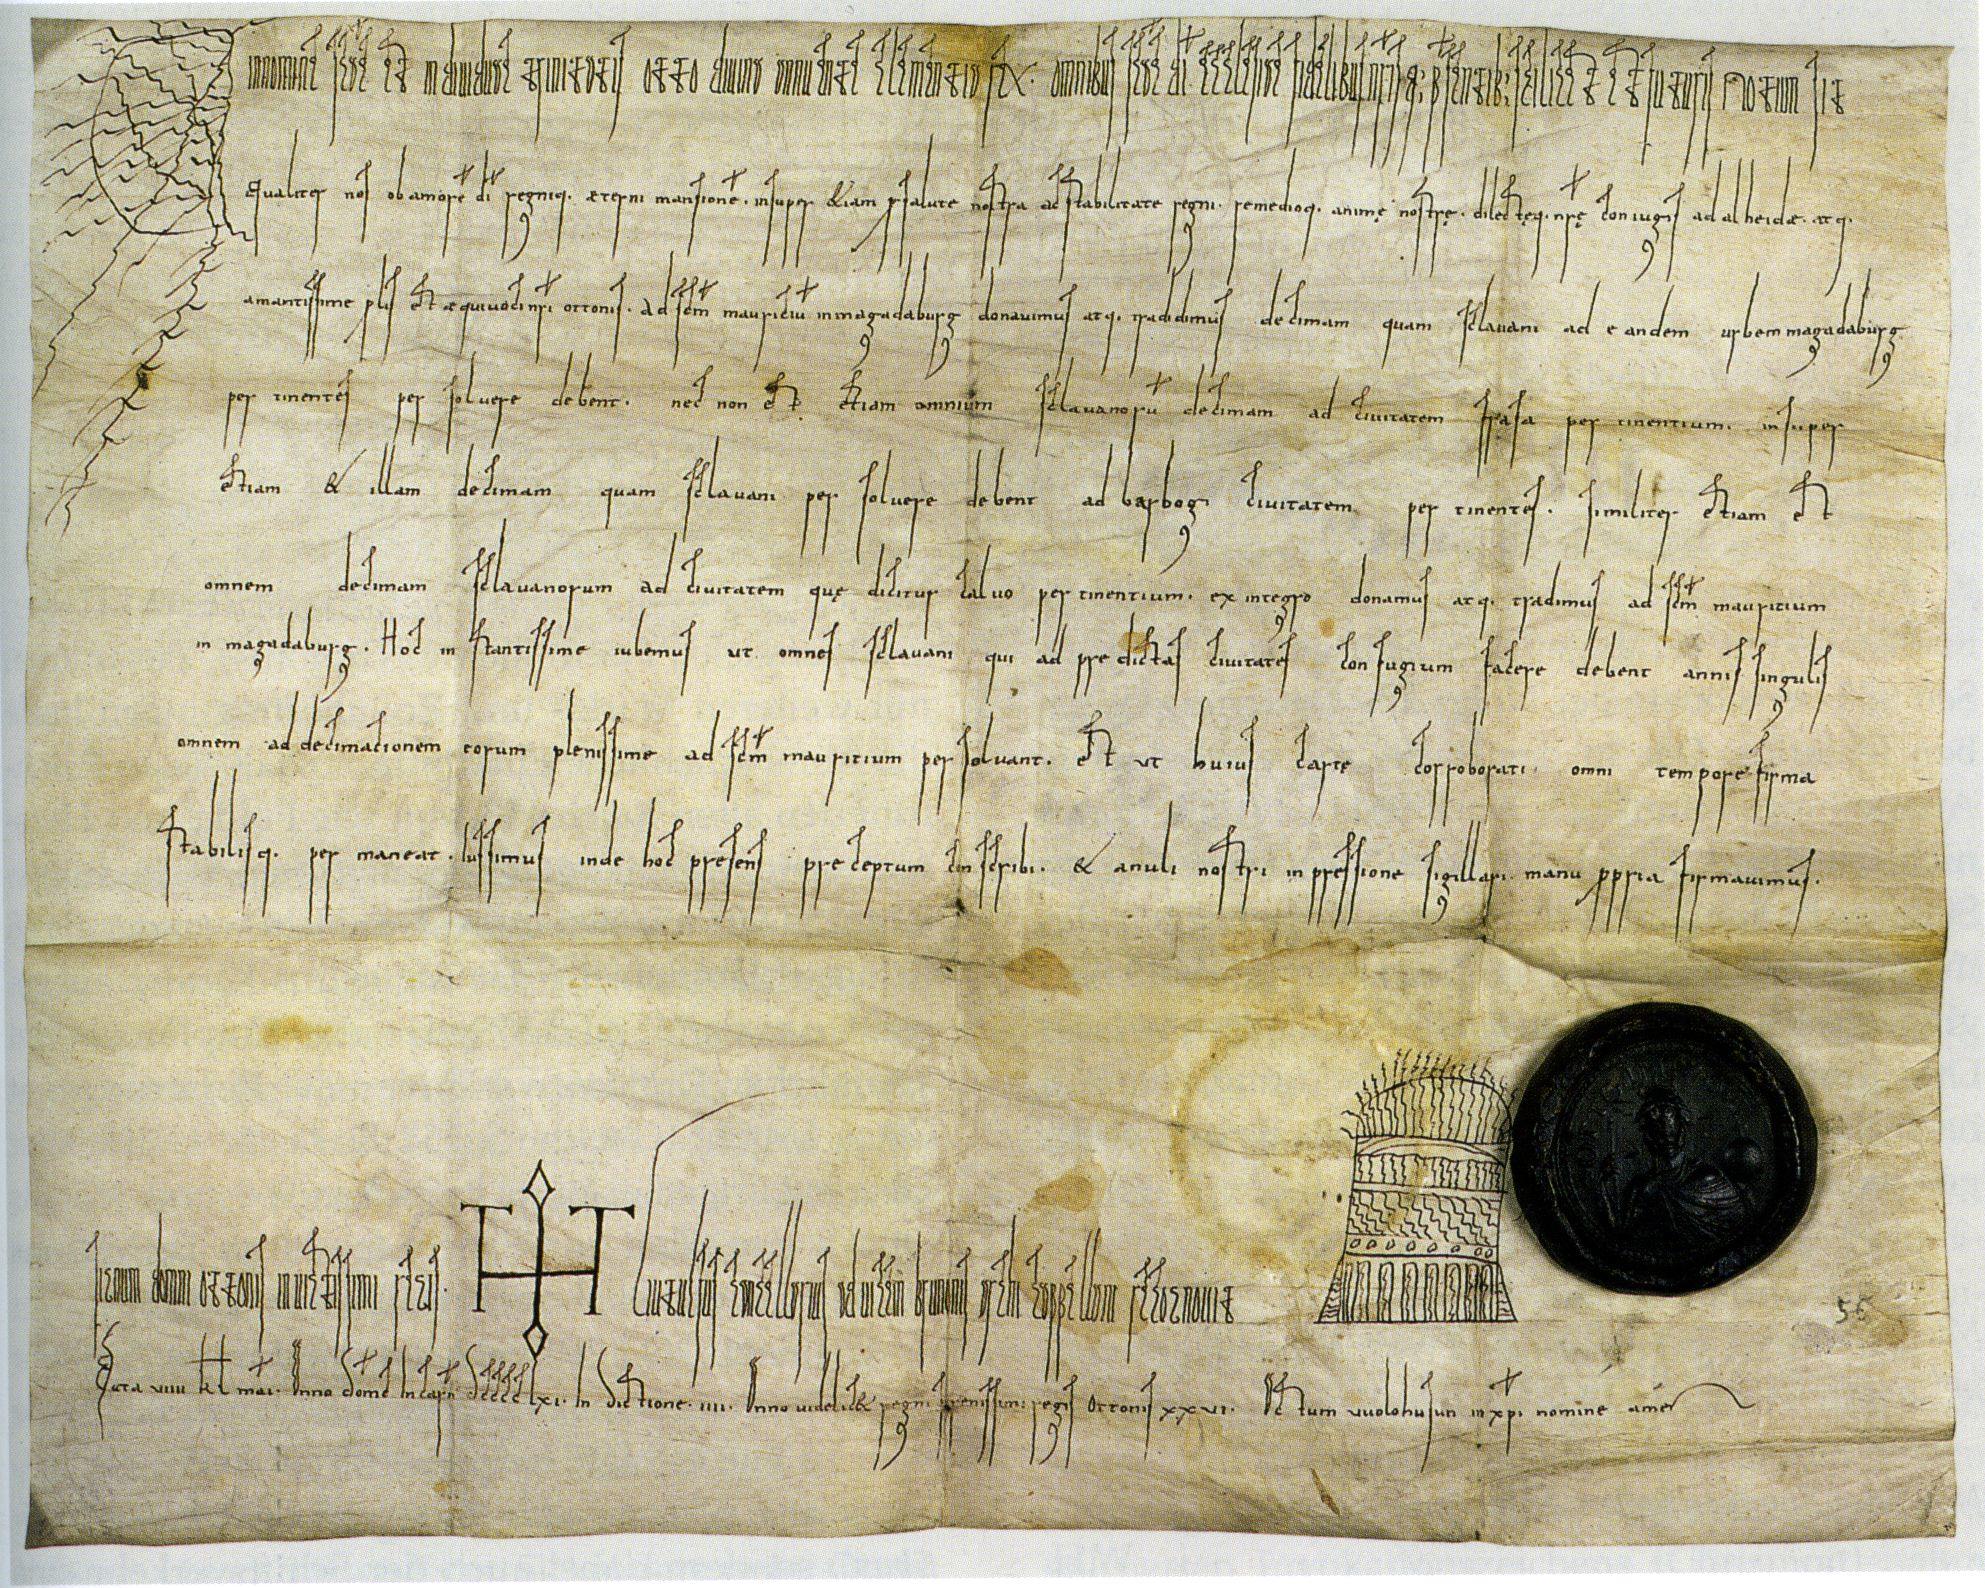 In nomine scae et individuae trinitatis otto divina annuente clementia rex. omnibus scae di ecclesiae fidelibus nris q; psentib; scilicet et futuris notum sit
qualiter nos ob amore di regniq. aeterni mansione. insuper &iam p salute nostra ad stabilitate regni. remedioq. anime nostre. dilecteq. nre coniugis adalheidae. atq.
amantissime plis et aequivoci nri ottonis. ad scm mauriciu in magadaburg donavimus atq. tradidimus decimam quam sclavani ad eandem urbem magadaburg
pertinentes persolvere debent. nec non et etiam omnium sclavanoru decimam ad civitatem frasa pertinentium. insuper
etiam & illam decimam quam sclavani persolvere debent ad barbogi civitatem pertinentes. similiter etiam et
omnem decimam sclavanorum ad civitatem que dicitur calvo pertinentium. ex integro donamus atq. tradimus ad scm mauritium
in magadaburg. Hoc instantissime iubemus ut omnes sclavani qui ad predictas civitates confugium facere debent annis singulis
omnem addecimacionem eorum plenissime ad scm mauritium persolvant. Et ut huius carte corroborati omni tempore firma
stabilisq. permaneat. iussimus inde hoc presens preceptum conscribi. & anuli nostri inpressione sigillari manu ppria firmavimus.
Signum domni ottonis invictissimi regis. Liutulfus cancellarius ad vicem brunonis archicappellani recognovit
Data viiii kl mai. Anno domc incarn dcccclxi. Indictione. iiii. Anno videlic& regni serenissimi regis Ottonis xxvi. Actum vvalahusun in xpi nomine amen
56